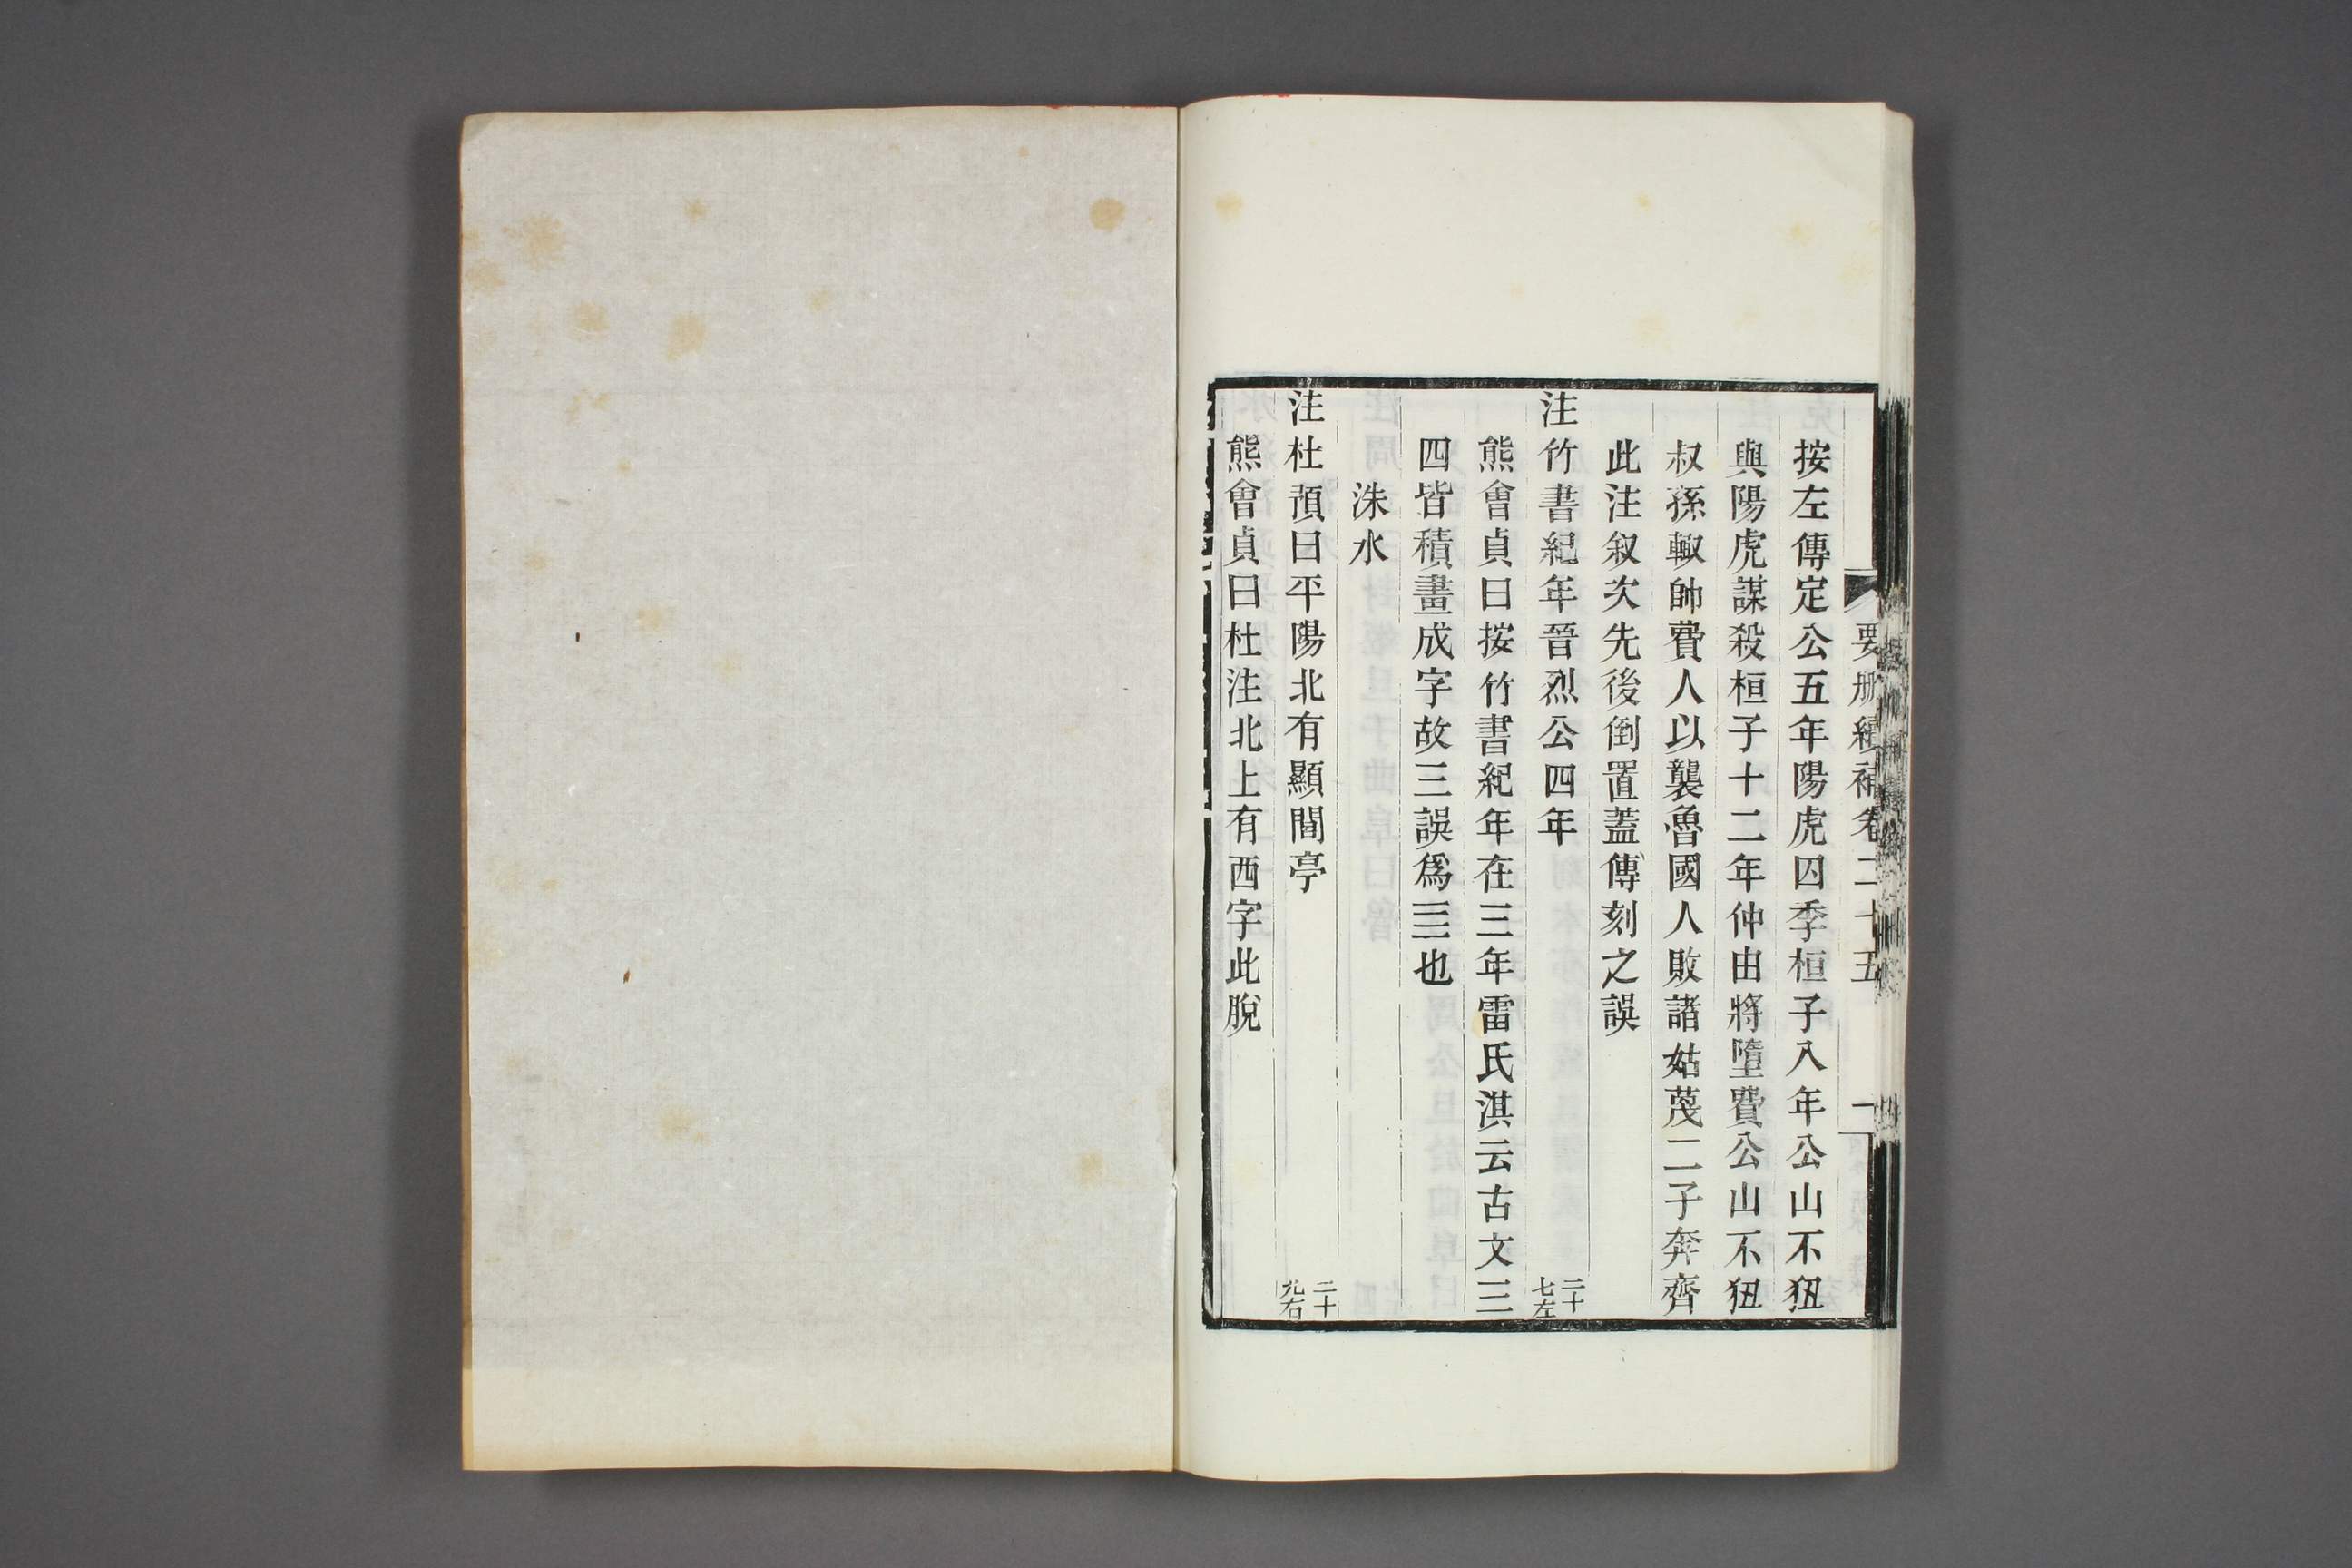 要刪續補卷二十五 一
按左傳定公五年陽虎囚季桓子八年公山不狃
與陽虎謀殺桓子十二年仲由將墮費公山不狃
叔孫輒帥費人以襲魯國人敗諸姑蔑二子奔齊
此注叙次先後倒置蓋傳刻之誤
注竹書紀年晉烈公四年 二十七左
熊會貞曰按竹書紀年在三年雷氏淇云古文三
四皆積畫成字故三誤爲亖也
洙水
注杜預曰平陽北有顯閭亭 二十九右
熊會貞曰杜注北上有西字此脫